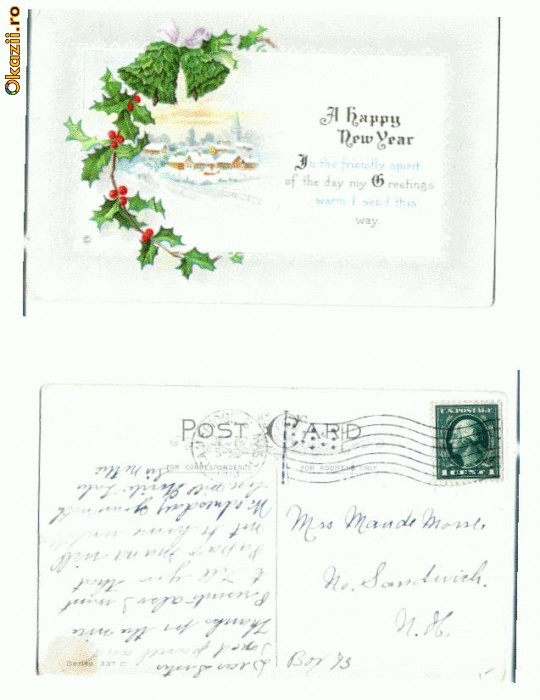 Okazii.ro
A Happy
New Year
In the friendly spirit
of the day my Greetings
warm I send this
way.
©
POST CARD
FOR CORRESPONDENCE
FOR ADDRESS ONLY
U.S. POSTAGE
1 CENT 1
Mrs Maude Morse
No. Sandwich.
N. H.
Box 73
Dear Sister
Thanks for the nice
Presents also I must
tell you that
Papa & Mama will
not be home until
Wednesday
Series 337 C